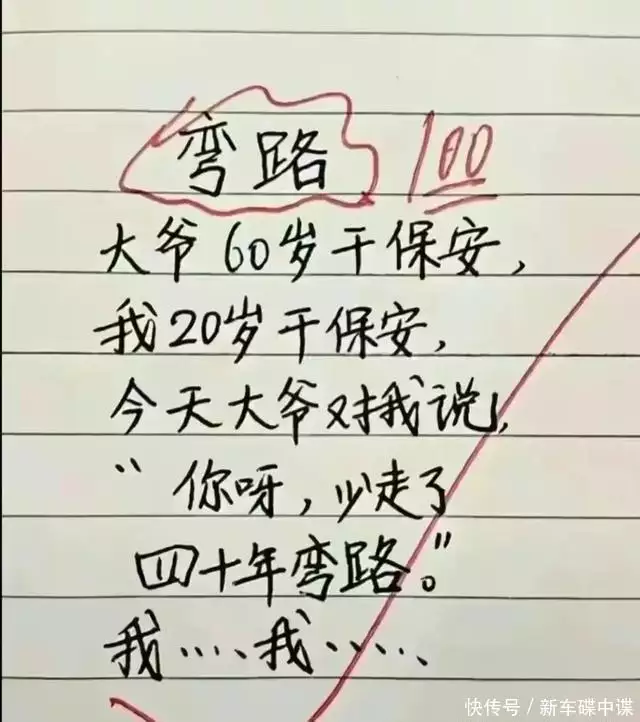 弯路 100
大爷60岁干保安,
我20岁干保安,
今天大爷对我说,
“你呀,少走了
四十年弯路。”
我....我.....
快传号/新车碟中谍